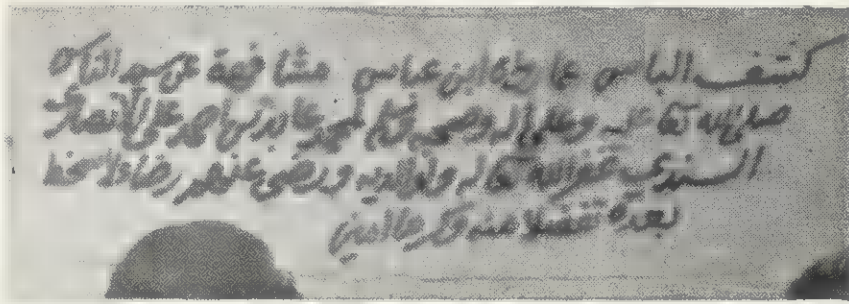 كشف الباس عما رواه ابن عباس مشافهة عن سيد الناس
صلى الله تعالى عليه وعلى آله وصحبه وسلم لمحمد عابد بن احمد على الانصارى
السندي غفر الله تعالى له ولوالديه ورضى عنهم رضا لا سخط
بعده تفضلا منه وكرما امين